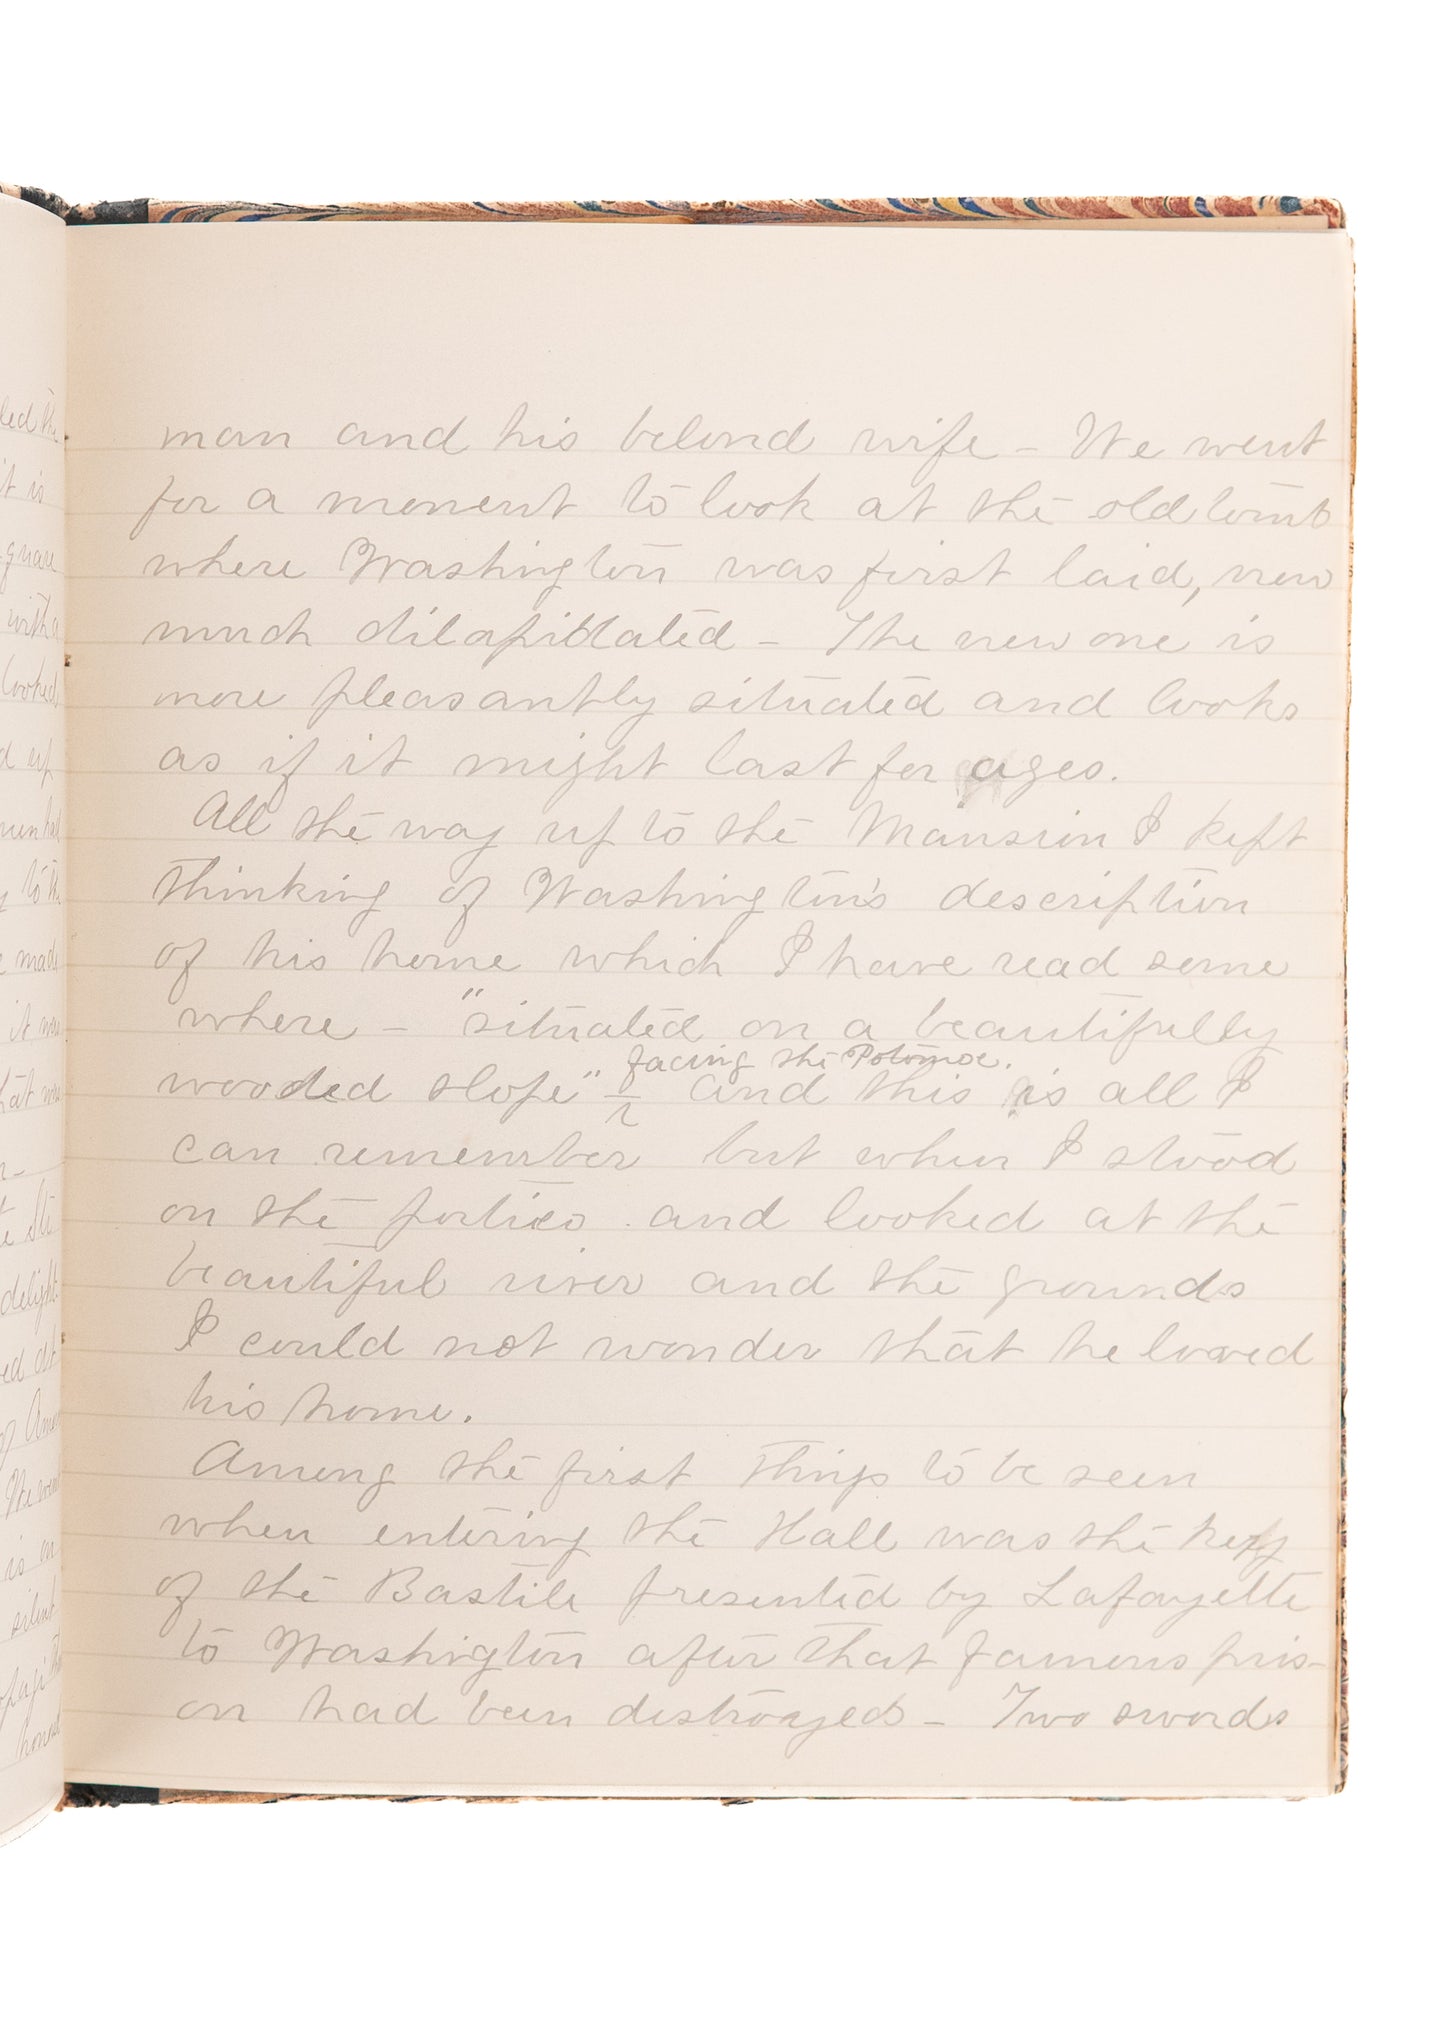 led the
it is
with a
looked
d up
to the
e made
it was
hat was
delight-
ed at
of Am
We wen
is on
silent
honest
man and his belovd wife – We went
for a moment to look at the old tomb
where Washington was first laid, now
much dilapidated – The new one is
more pleasantly situated and looks
as if it might last for ages.
All the way up to the Mansion I kept
thinking of Washington's description
of his home which I have read some
where – "situated on a beautifully
facing the Potomac.
wooded slope" – and this is all I
can remember but when I stood
on the portico and looked at the
beautiful river and the grounds
I could not wonder that he loved
his home.
Among the first things to be seen
when entering the Hall was the key
of the Bastile presented by Lafayette
to Washington after that famous pris-
on had been destroyed – Two swords